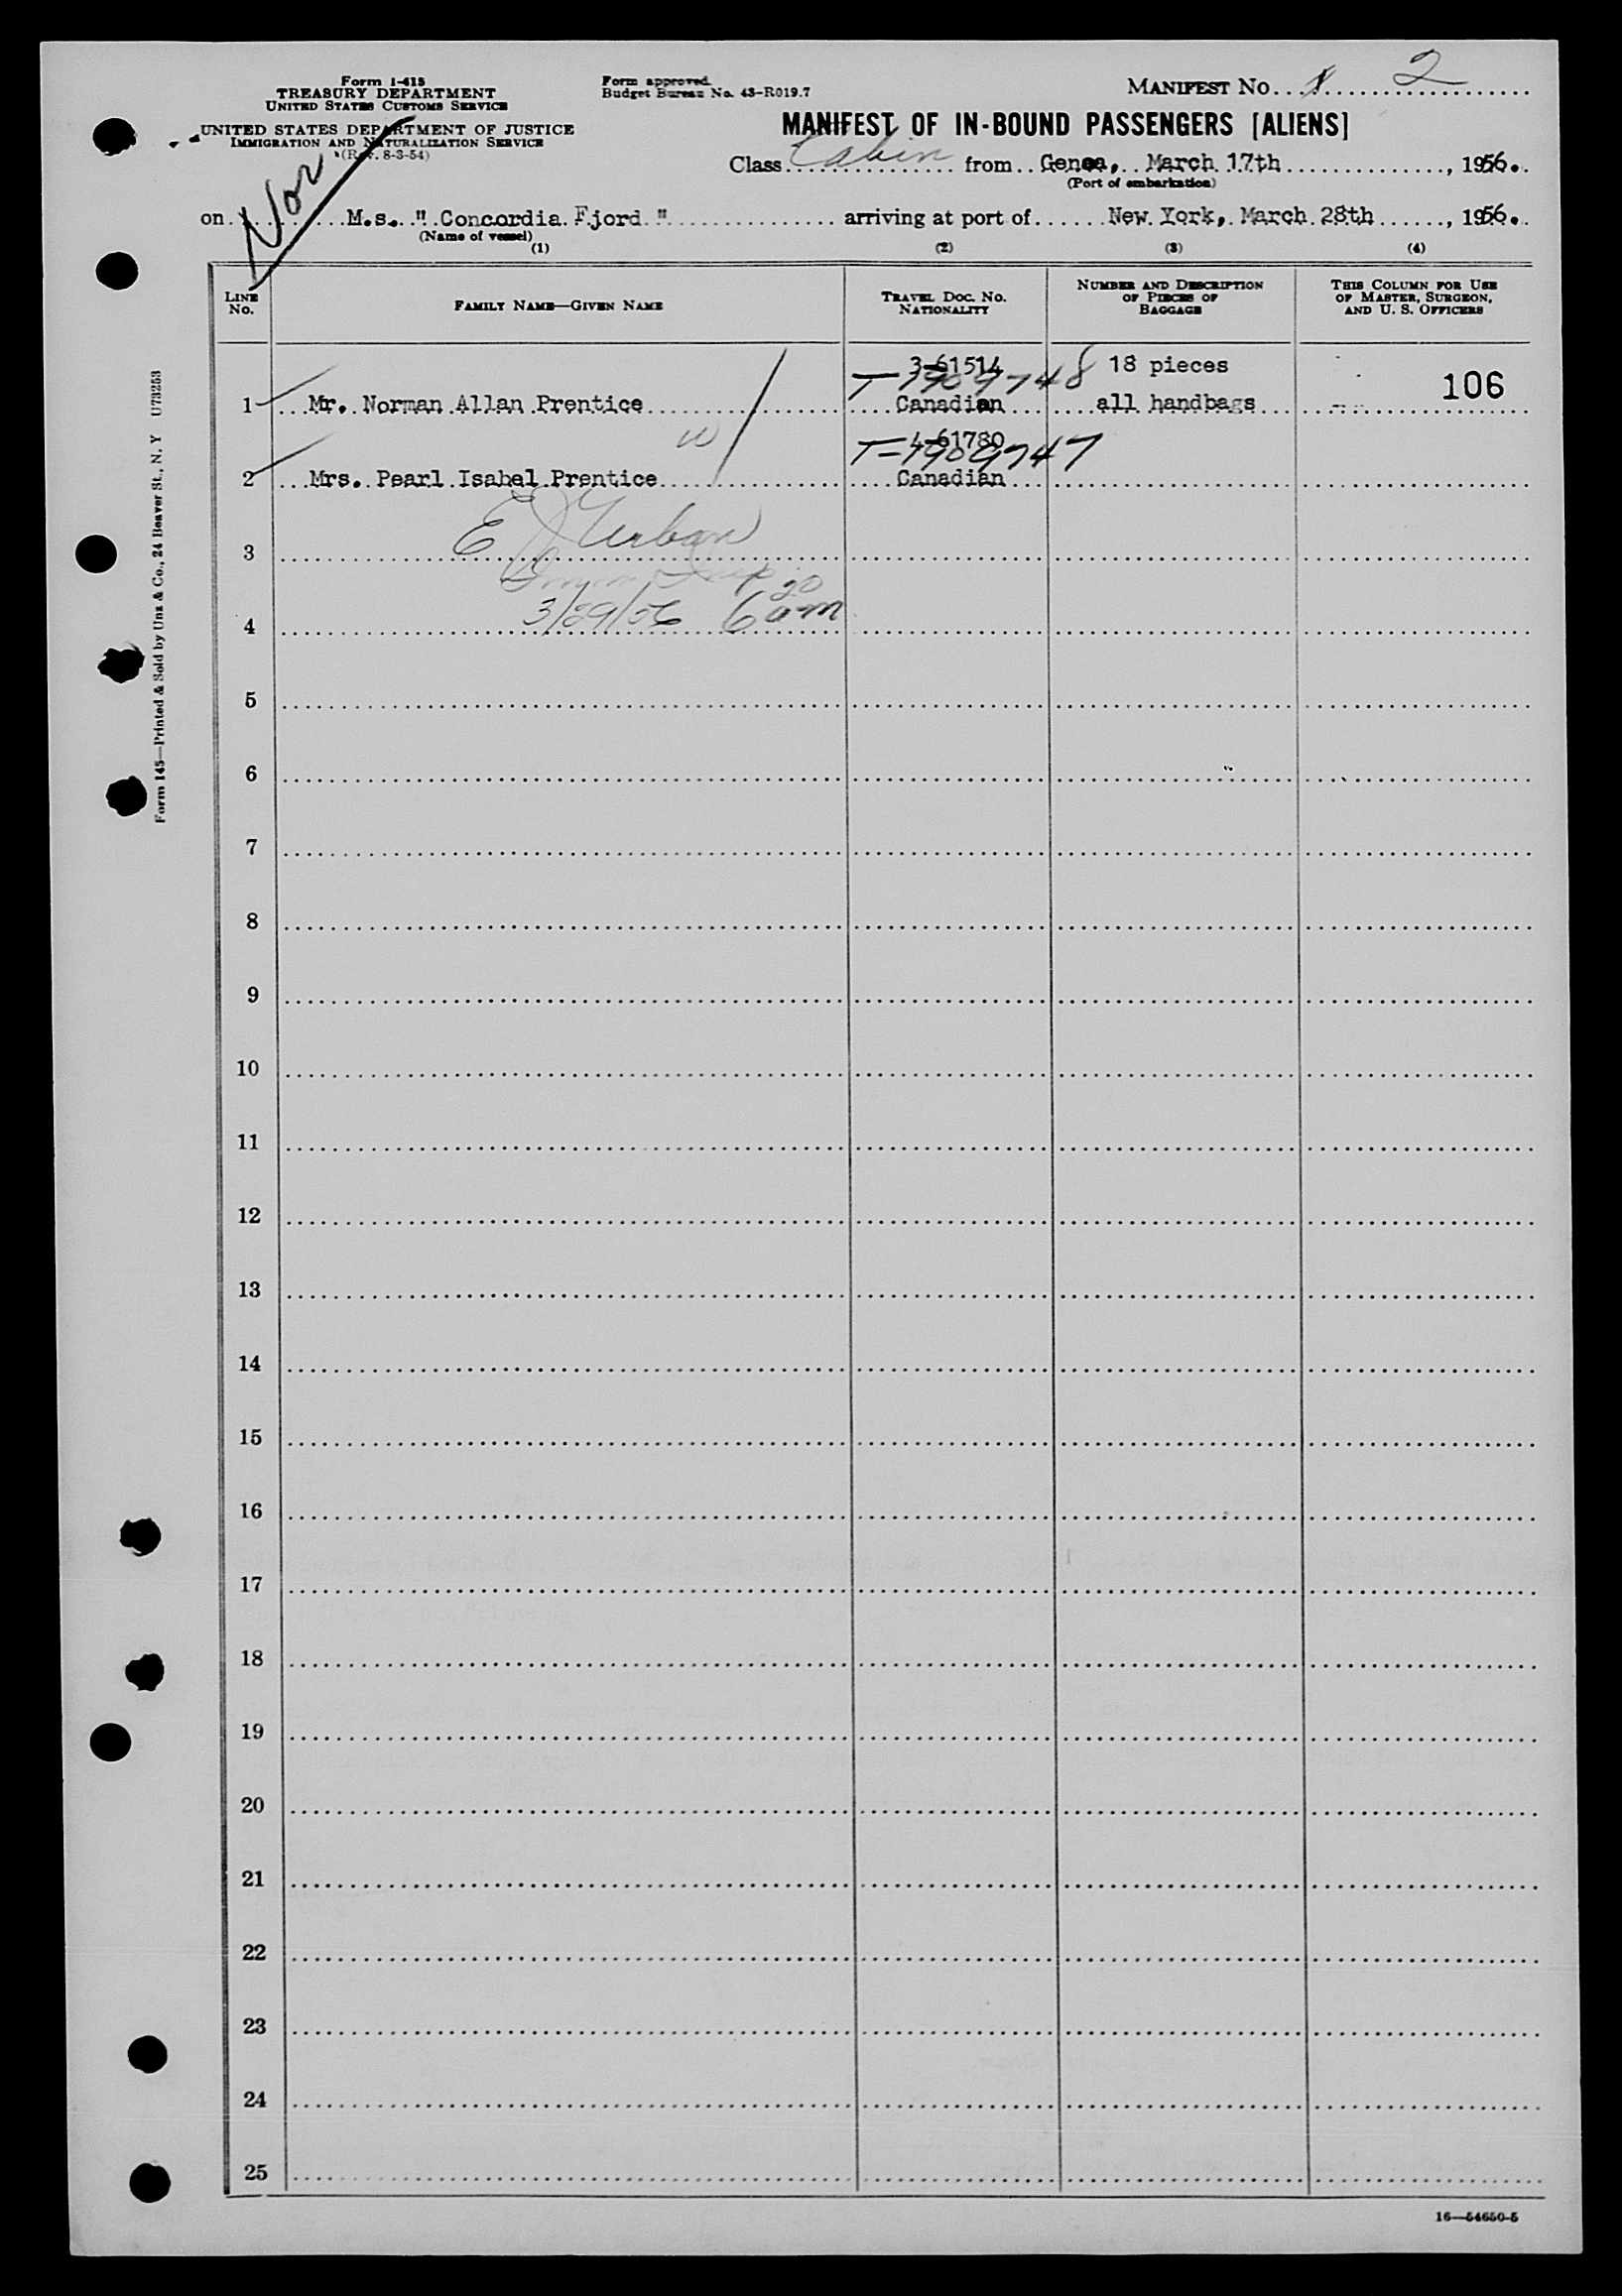 Form I-418
TREASURY DEPARTMENT
UNITED STATES CUSTOMS SERVICE
UNITED STATES DEPARTMENT OF JUSTICE
IMMIGRATION AND NATURALIZATION SERVICE
(Rev. 8-3-54)
Form approved.
Budget Bureau No. 43-R019.7
MANIFEST NO. 2
MANIFEST OF IN-BOUND PASSENGERS [ALIENS]
Class Cabin from Genoa, March 17th, 1956.
(Port of embarkation)
Nor
on M.s. " Concordia Fjord " arriving at port of New York, March 28th, 1956.
(Name of vessel)
(1) (2) (3) (4)
LINE NO.
FAMILY NAME—GIVEN NAME
TRAVEL DOC. NO. NATIONALITY
NUMBER AND DESCRIPTION OF PIECES OF BAGGAGE
THIS COLUMN FOR USE OF MASTER, SURGEON, AND U. S. OFFICERS
3-61514 18 pieces
T-1909748
1 Mr. Norman Allan Prentice Canadian all handbags 106
W
4-61780
T-1909747
2 Mrs. Pearl Isabel Prentice Canadian
E J Urban
3
3/29/56 6 am
4
5
6
7
8
9
10
11
12
13
14
15
16
17
18
19
20
21
22
23
24
25
16—54650-5
Form 145—Printed & Sold by Unz & Co., 24 Beaver St., N. Y U73253